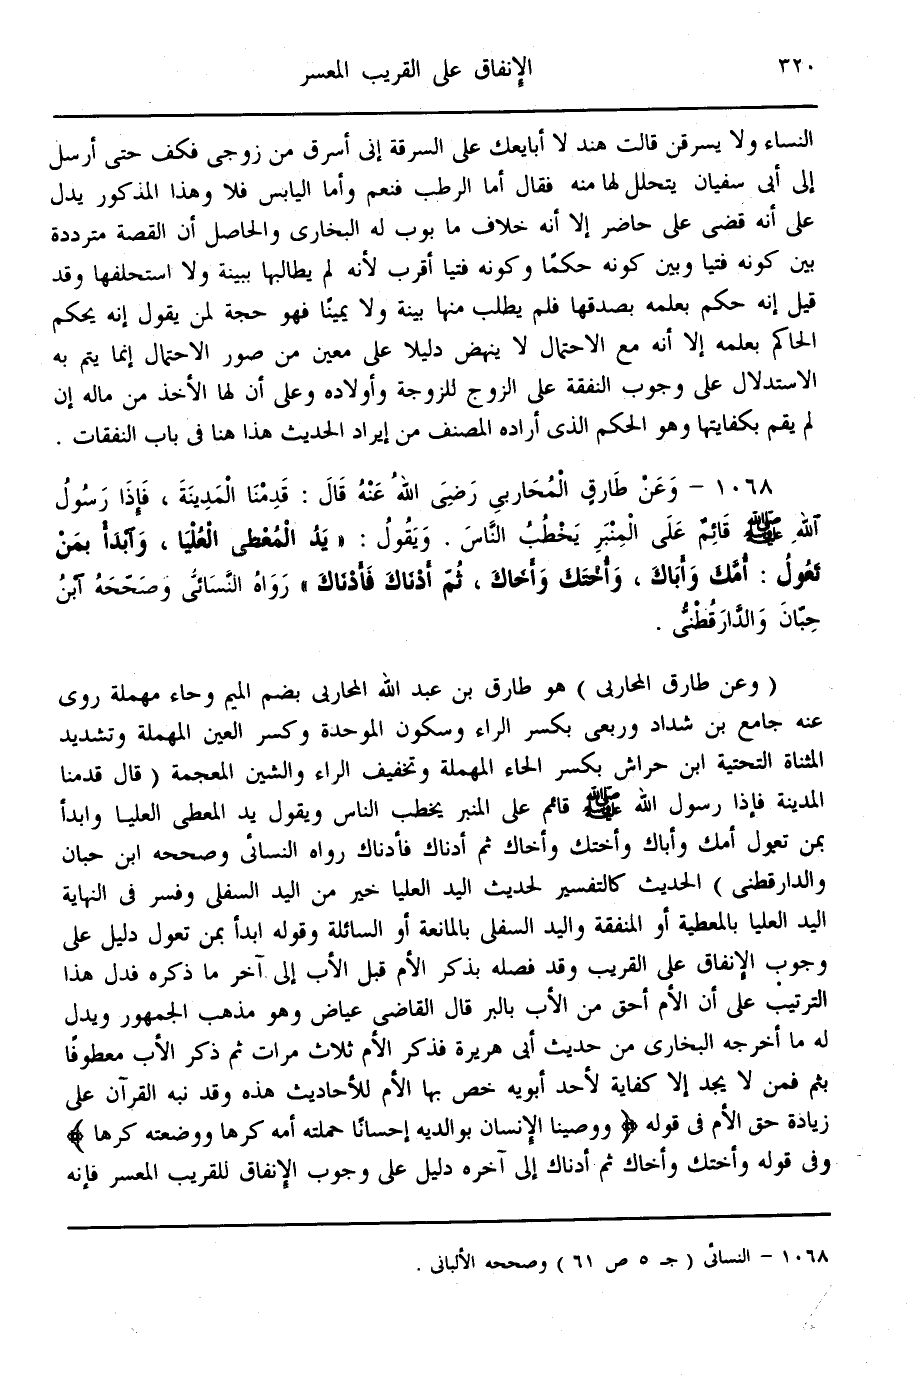 ٣٢٠
الإنفاق على القريب المعسر
النساء ولا يسرقن قالت هند لا أبايعك على السرقة إنى أسرق من زوجى فكف حتى أرسل
إلى أبى سفيان يتحلل لها منه فقال أما الرطب فنعم وأما اليابس فلا وهذا المذكور يدل
على أنه قضى على حاضر إلا أنه خلاف ما بوب له البخارى والحاصل أن القصة مترددة
بين كونه فتيا وبين كونه حكمًا وكونه فتيا أقرب لأنه لم يطالبها ببينة ولا استحلفها وقد
قيل إنه حكم بعلمه بصدقها فلم يطلب منها بينة ولا يمينًا فهو حجة لمن يقول إنه يحكم
الحاكم بعلمه إلا أنه مع الاحتمال لا ينهض دليلا على معين من صور الاحتمال إنما يتم به
الاستدلال على وجوب النفقة على الزوج للزوجة وأولاده وعلى أن لها الأخذ من ماله إن
لم يقم بكفايتها وهو الحكم الذى أراده المصنف من إيراد الحديث هذا هنا فى باب النفقات .
١٠٦٨ – وَعَنْ طَارِقٍ الْمُحَارِبي رَضِيَ اللهُ عَنْهُ قَالَ : قَدِمْنَا الْمَدِينَةَ ، فَإِذَا رَسُولُ
اللهِ ﷺ قَائِمٌ عَلَى الْمِنْبَرِ يَخْطُبُ النَّاسَ . وَيَقُولُ : « يَدُ الْمُعْطِى الْعُلْيَا ، وَابْدَأْ بِمَنْ
تَعُولُ : أُمَّكَ وَأَبَاكَ ، وَأُخْتَكَ وَأَخَاكَ ، ثُمّ أَدْنَاكَ فَأَدْنَاكَ » رَوَاهُ النَّسَائىُّ وَصَحّحَهُ ابْنُ
حِبّانَ وَالدَّارَقُطْنىُّ .
( وعن طارق المحاربى ) هو طارق بن عبد الله المحاربى بضم الميم وحاء مهملة روى
عنه جامع بن شداد وربعى بكسر الراء وسكون الموحدة وكسر العين المهملة وتشديد
المثناة التحتية ابن حراش بكسر الحاء المهملة وتخفيف الراء والشين المعجمة ( قال قدمنا
المدينة فإذا رسول الله ﷺ قائم على المنبر يخطب الناس ويقول يد المعطى العليا وابدأ
بمن تعول أمك وأباك وأختك وأخاك ثم أدناك فأدناك رواه النسائى وصححه ابن حبان
والدارقطنى ) الحديث كالتفسير لحديث اليد العليا خير من اليد السفلى وفسر فى النهاية
اليد العليا بالمعطية أو المنفقة واليد السفلى بالمانعة أو السائلة وقوله ابدأ بمن تعول دليل على
وجوب الإنفاق على القريب وقد فصله بذكر الأم قبل الأب إلى آخر ما ذكره فدل هذا
الترتيب على أن الأم أحق من الأب بالبر قال القاضى عياض وهو مذهب الجمهور ويدل
له ما أخرجه البخارى من حديث أبى هريرة فذكر الأم ثلاث مرات ثم ذكر الأب معطوفًا
بثم فمن لا يجد إلا كفاية لأحد أبويه خص بها الأم للأحاديث هذه وقد نبه القرآن على
زيادة حق الأم فى قوله ﴿ ووصينا الإنسان بوالديه إحسانًا حملته أمه كرها ووضعته كرها ﴾
وفى قوله وأختك وأخاك ثم أدناك إلى آخره دليل على وجوب الإنفاق للقريب المعسر فإنه
١٠٦٨ – النسائى ( جـ ٥ ص ٦١ ) وصححه الألبانى .